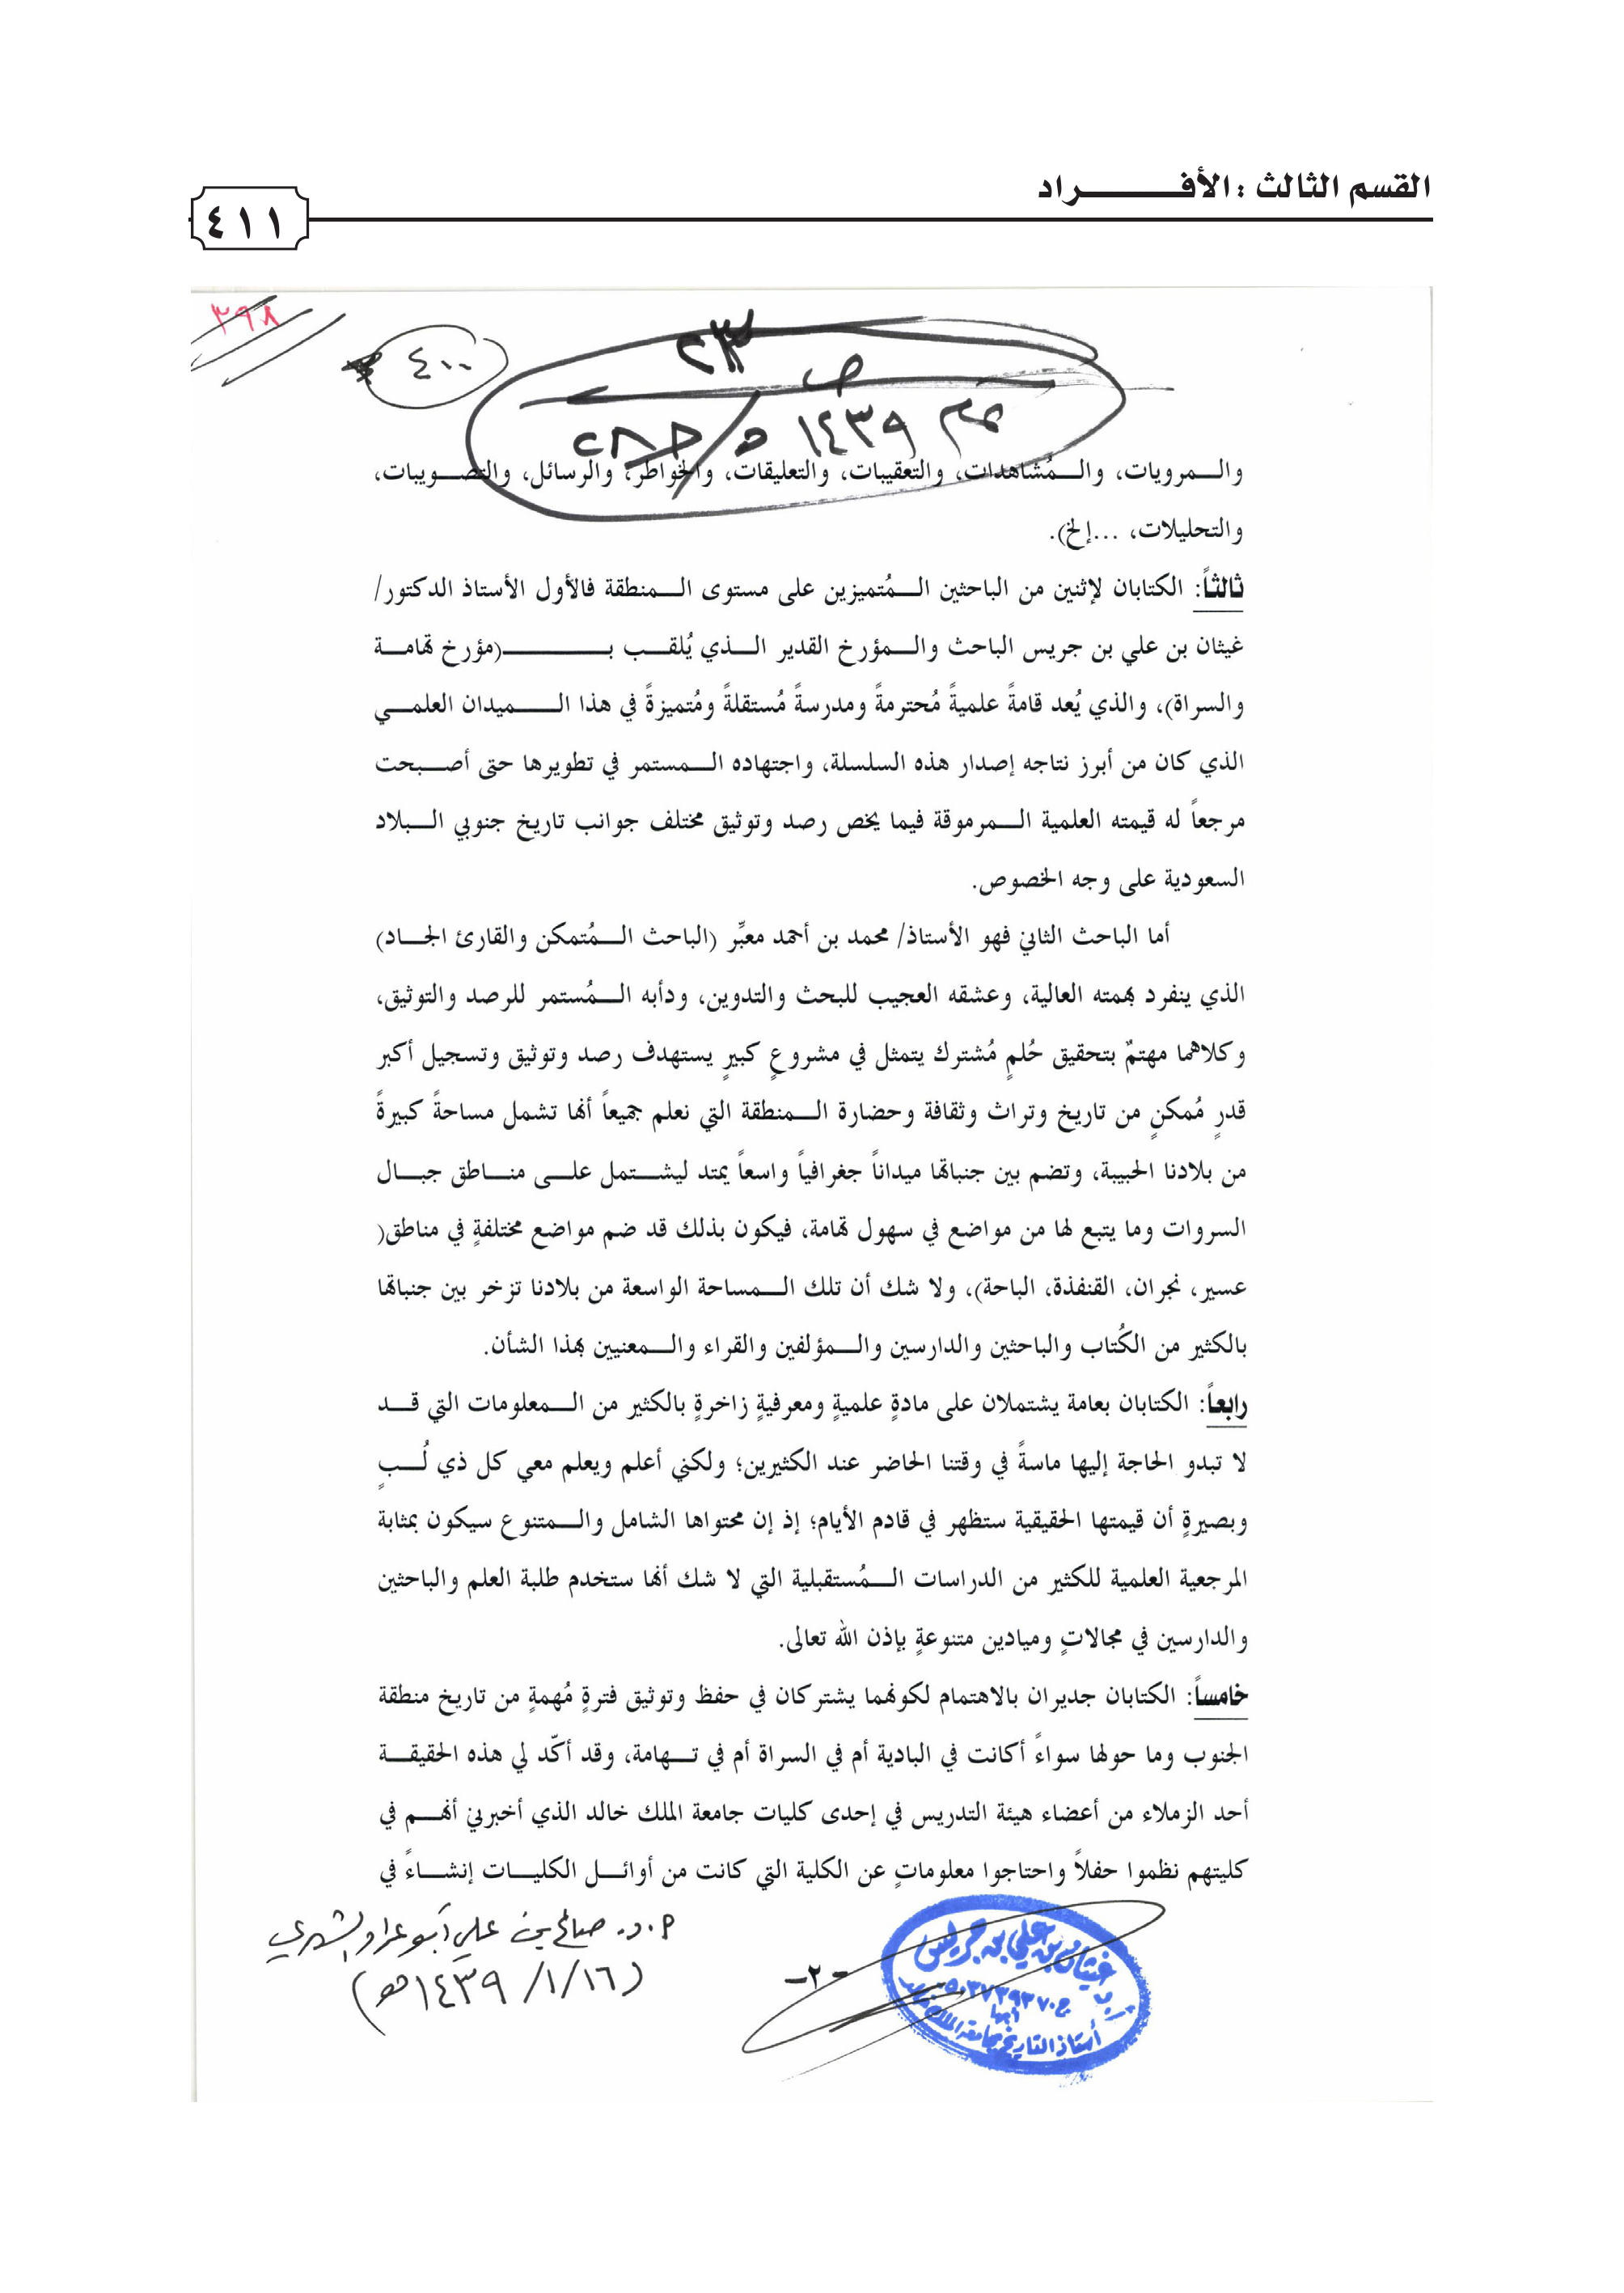 القسم الثالث : الأفـــــــراد
٤١١
٣٩٨
٤٠٠
٢٣
ص
١٤٣٩ هـ
والـمرويات، والـمُشاهدات، والتعقيبات، والتعليقات، والخواطر، والرسائل، والتصـويبات،
والتحليلات، ...إلخ).
ثالثاً: الكتابان لإثنين من الباحثين الـمُتميزين على مستوى الـمنطقة فالأول الأستاذ الدكتور/
غيثان بن علي بن جريس الباحث والـمؤرخ القدير الـذي يُلقـب بـــــــ(مؤرخ تهامـة
والسراة)، والذي يُعد قامةً علميةً مُحترمةً ومدرسةً مُستقلةً ومُتميزةً في هذا الــميدان العلمـي
الذي كان من أبرز نتاجه إصدار هذه السلسلة، واجتهاده الـمستمر في تطويرها حتى أصـبحت
مرجعاً له قيمته العلمية الـمرموقة فيما يخص رصد وتوثيق مختلف جوانب تاريخ جنوبي الـبلاد
السعودية على وجه الخصوص.
أما الباحث الثاني فهو الأستاذ/ محمد بن أحمد معبِّر (الباحث الـمُتمكن والقارئ الجـاد)
الذي ينفرد بهمته العالية، وعشقه العجيب للبحث والتدوين، ودأبه الـمُستمر للرصد والتوثيق،
وكلاهما مهتمٌ بتحقيق حُلمٍ مُشترك يتمثل في مشروعٍ كبيرٍ يستهدف رصد وتوثيق وتسجيل أكبر
قدرٍ مُمكنٍ من تاريخ وتراث وثقافة وحضارة الـمنطقة التي نعلم جميعاً أنها تشمل مساحةً كبيرةً
من بلادنا الحبيبة، وتضم بين جنباتها ميداناً جغرافياً واسعاً يمتد ليشـتمل علـى منـاطق جبـال
السروات وما يتبع لها من مواضع في سهول تهامة، فيكون بذلك قد ضم مواضع مختلفةٍ في مناطق(
عسير، نجران، القنفذة، الباحة)، ولا شك أن تلك الـمساحة الواسعة من بلادنا تزخر بين جنباتها
بالكثير من الكُتاب والباحثين والدارسين والـمؤلفين والقراء والـمعنيين بهذا الشأن.
رابعاً: الكتابان بعامة يشتملان على مادةٍ علميةٍ ومعرفيةٍ زاخرةٍ بالكثير من الـمعلومات التي قـد
لا تبدو الحاجة إليها ماسةً في وقتنا الحاضر عند الكثيرين؛ ولكني أعلم ويعلم معي كل ذي لُـبٍ
وبصيرةٍ أن قيمتها الحقيقية ستظهر في قادم الأيام؛ إذ إن محتواها الشامل والـمتنوع سيكون بمثابة
المرجعية العلمية للكثير من الدراسات الـمُستقبلية التي لا شك أنها ستخدم طلبة العلم والباحثين
والدارسين في مجالاتٍ وميادين متنوعةٍ بإذن الله تعالى.
خامساً: الكتابان جديران بالاهتمام لكونهما يشتركان في حفظ وتوثيق فترةٍ مُهمةٍ من تاريخ منطقة
الجنوب وما حولها سواءً أكانت في البادية أم في السراة أم في تـهامة، وقد أكّد لي هذه الحقيقـة
أحد الزملاء من أعضاء هيئة التدريس في إحدى كليات جامعة الملك خالد الذي أخبرني أنهـم في
كليتهم نظموا حفلاً واحتاجوا معلوماتٍ عن الكلية التي كانت من أوائـل الكليـات إنشـاءً في
أ.د. صالح بن علي أبو عراد الشهري
(١٤٣٩/١/١٦هـ)
-٢-
غيثان بن علي بن جريس
أ.د
ج.٠٥٠٣٧٣٩٣٧٠
أبها
أستاذ التاريخ بجامعة الملك خالد